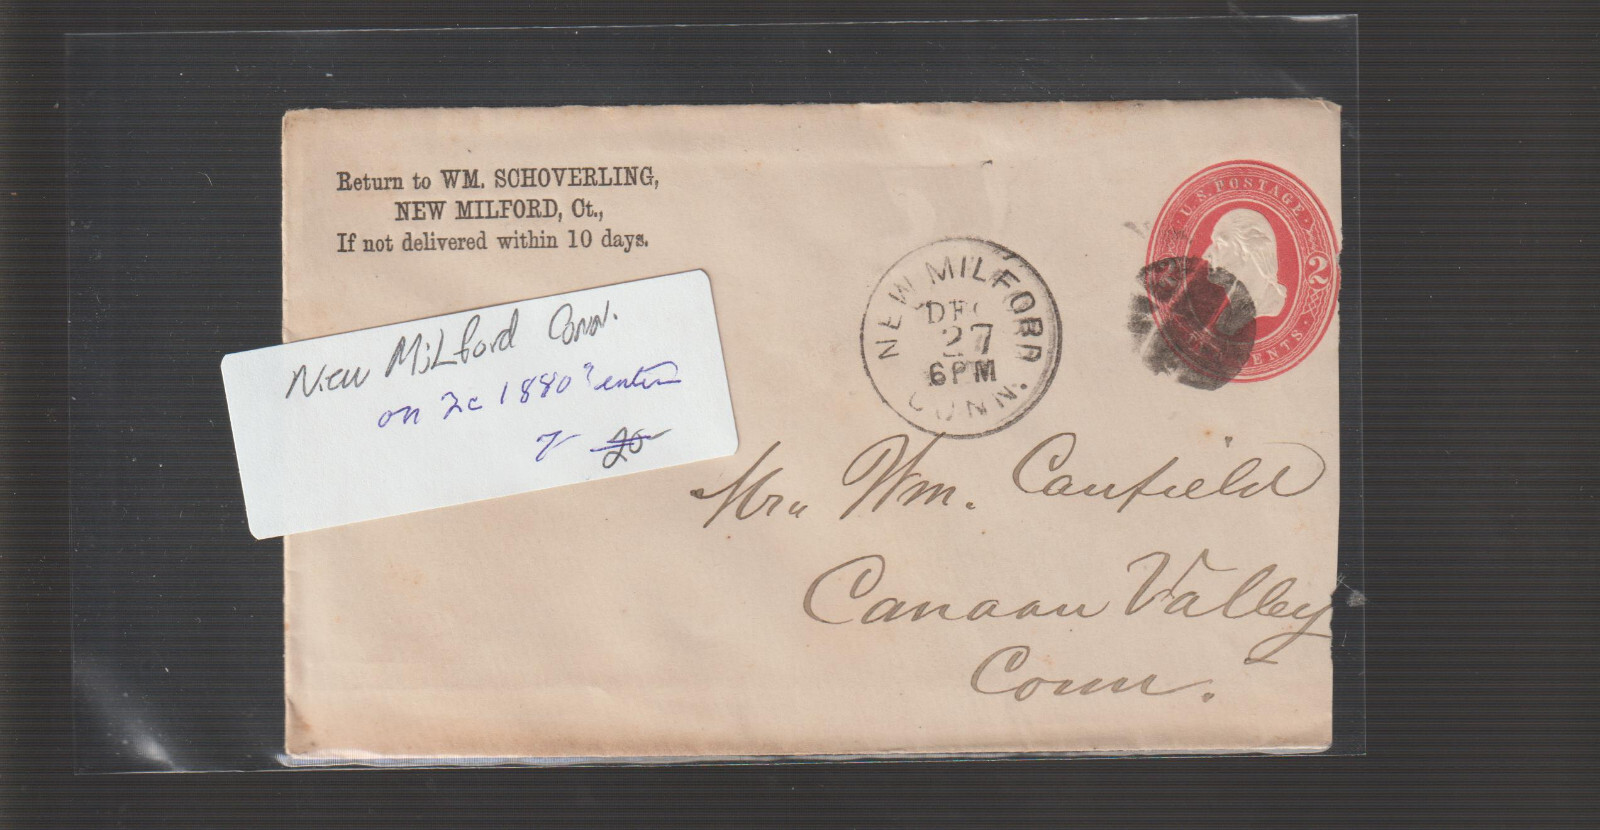 Return to WM. SCHOVERLING,
NEW MILFORD, Ct.,
If not delivered within 10 days.
U.S. POSTAGE
2
TWO CENTS
NEW MILFORD
DEC
27
6PM
CONN.
New Milford Conn.
on 2c 1880s entire
20
Mrs Wm. Canfield
Canaan Valley
Conn.